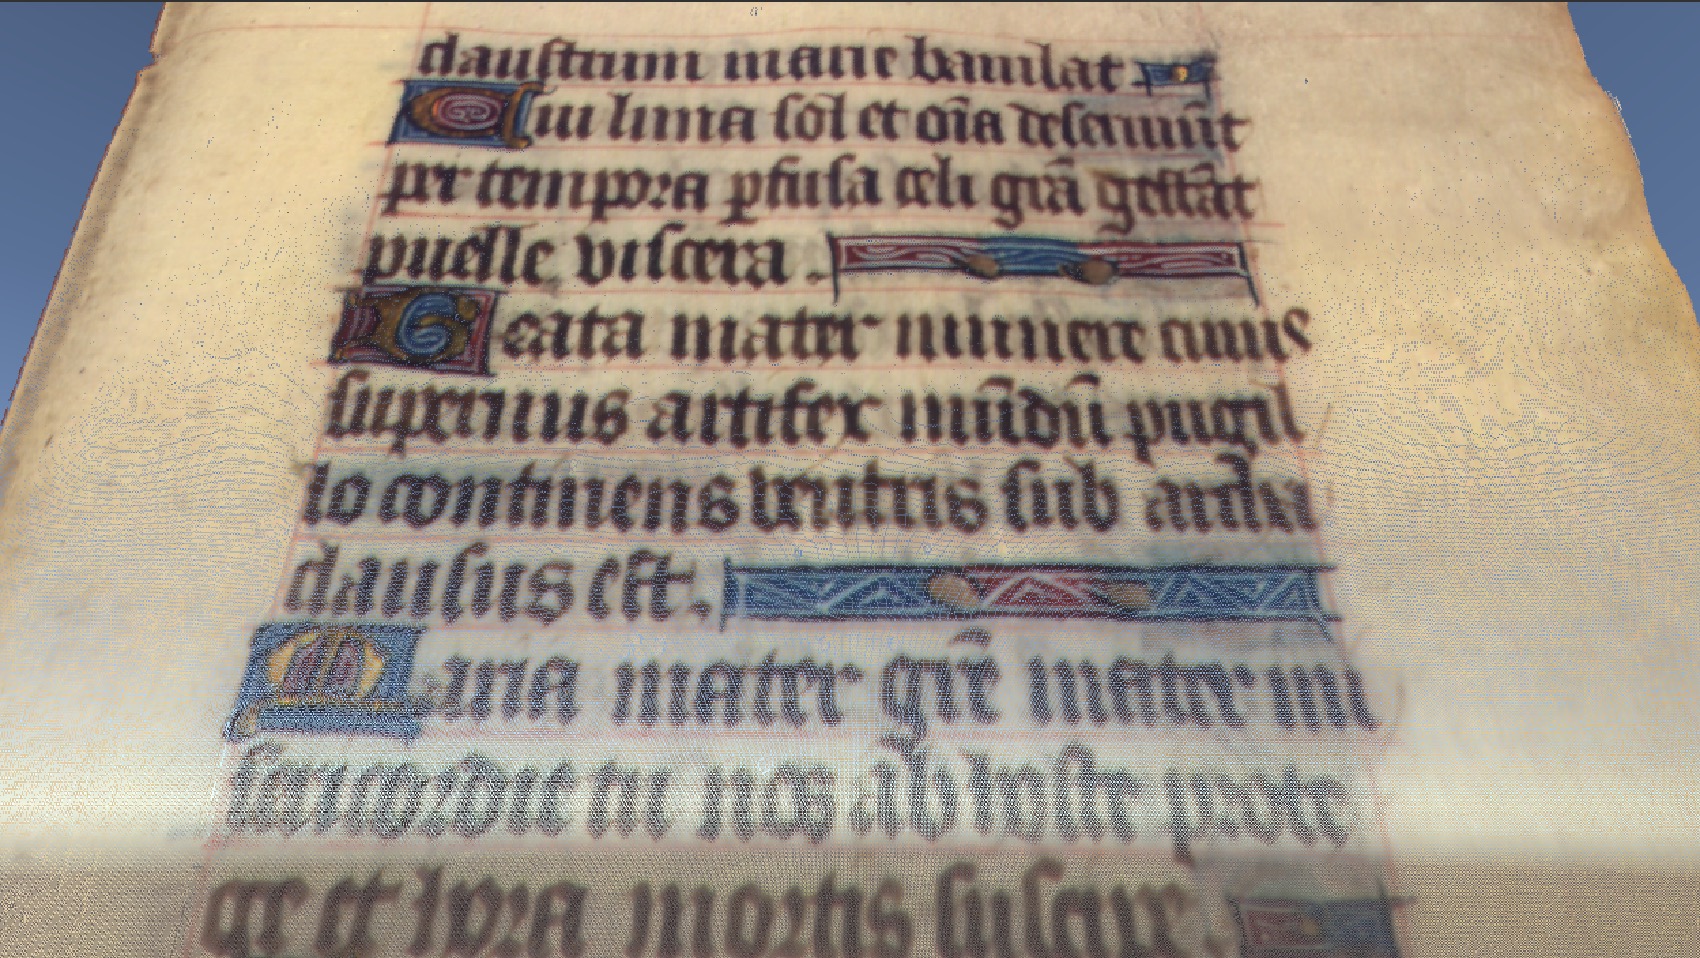 claustrum marie baiulat
Cui luna sol et oīa deseruiūt
per tempora ꝑfusa celi grā gestāt
puelle viscera .
Beata mater munere cuius
supernus artifex mūdū pugil
lo continens ventris sub archa
clausus est.
Maria mater grē mater mi
sericordie tu nos ab hoste prote
ge et hora mortis suscipe.